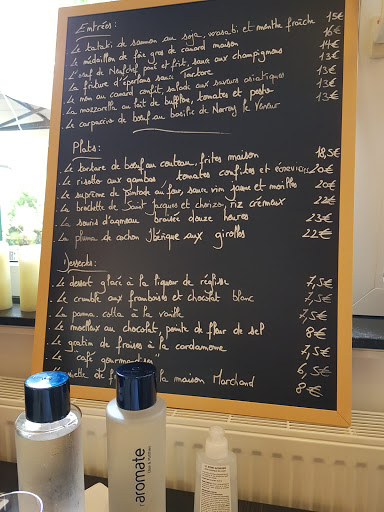 Entrées:
. Le tataki de saumon au soja, wasabi et menthe fraîche 15€
. Le médaillon de foie gras de canard maison 16€
. L'œuf de Neufchef poné et frit, sauce aux champignons 14€
. La friture d'éperlans sauce Tartare 13€
. Le nem au canard confit, salade aux saveurs asiatiques 13€
. La mozzarella au lait de bufflone, tomates et pesto 13€
. Le carpaccio de bœuf au basilic de Norroy le Veneur 13€
Plats:
. Le tartare de bœuf au couteau, frites maison 18,5€
. Le risotto aux gambas, tomates confites et écrevisses 20€
. Le suprême de pintade au four, sauce vin jaune et morilles 20€
. La brochette de Saint Jacques et chorizo, riz crémeux 22€
. La souris d'agneau braisée douze heures 23€
. La pluma de cochon Ibérique aux girolles 22€
Desserts:
. Le dessert glacé à la liqueur de réglisse 7,5€
. Le crumble aux framboises et chocolat blanc 7,5€
. La panna cotta à la vanille 7,5€
. Le moelleux au chocolat, pointe de fleur de sel 8€
. Le gratin de fraises à la cardamome 7,5€
. Le "café gourmandises" 6,5€
de la maison Marchand 8€
aromate